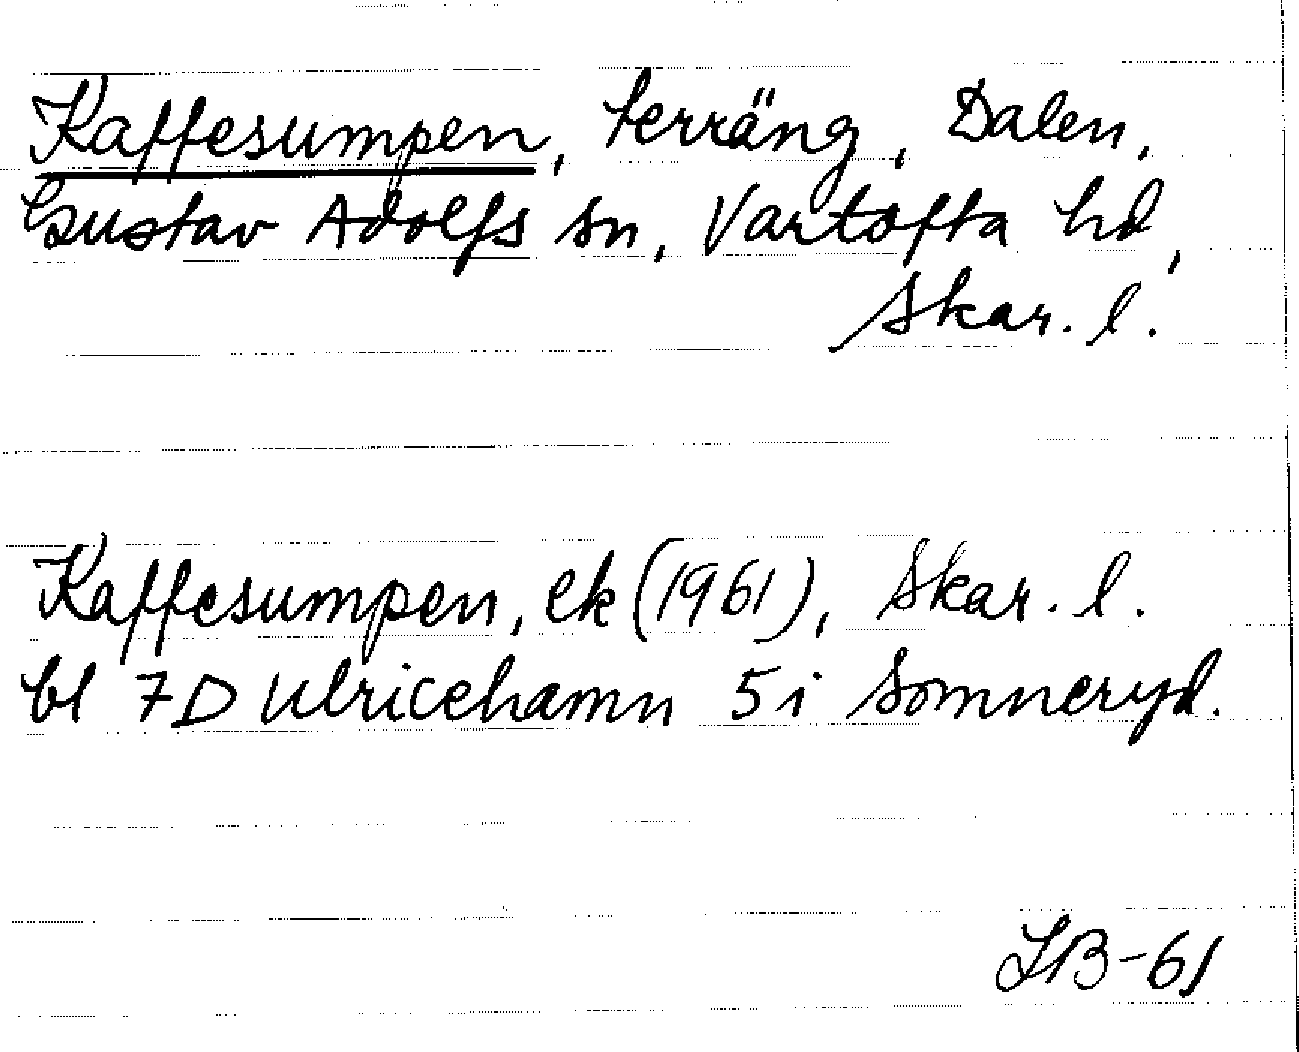 Kaffesumpen, terräng, Dalen,
Gustav Adolfs sn, Vartofta hd,
Skar. l.
Kaffesumpen, ek (1961), Skar. l.
bl 7D Ulricehamn 5i Somneryd.
LB-61